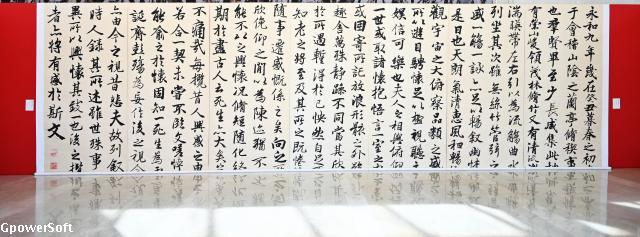 永和九年歲在癸丑暮春之初
于會稽山陰之蘭亭脩稧事
也群賢畢至少長咸集此地
有崇山峻領茂林脩竹又有清流激
湍暎帶左右引以為流觴曲水
列坐其次雖無絲竹管弦之
盛一觴一詠亦足以暢敘幽情
是日也天朗氣清惠風和暢仰
觀宇宙之大俯察品類之盛
所以遊目騁懷足以極視聽之
娛信可樂也夫人之相與俯仰
一世或取諸懷抱悟言一室之內
或因寄所託放浪形骸之外雖
趣舍萬殊靜躁不同當其欣
於所遇暫得於己怏然自足不
知老之將至及其所之既惓情
隨事遷感慨係之矣向之所
欣俛仰之間以為陳迹猶不
能不以之興懷況脩短隨化終
期於盡古人云死生亦大矣豈
不痛哉每攬昔人興感之由
若合一契未嘗不臨文嗟悼不
能喻之於懷固知一死生為虛
誕齊彭殤為妄作後之視今
亦由今之視昔悲夫故列敘
時人錄其所述雖世殊事
異所以興懷其致一也後之攬
者亦將有感於斯文
GpowerSoft